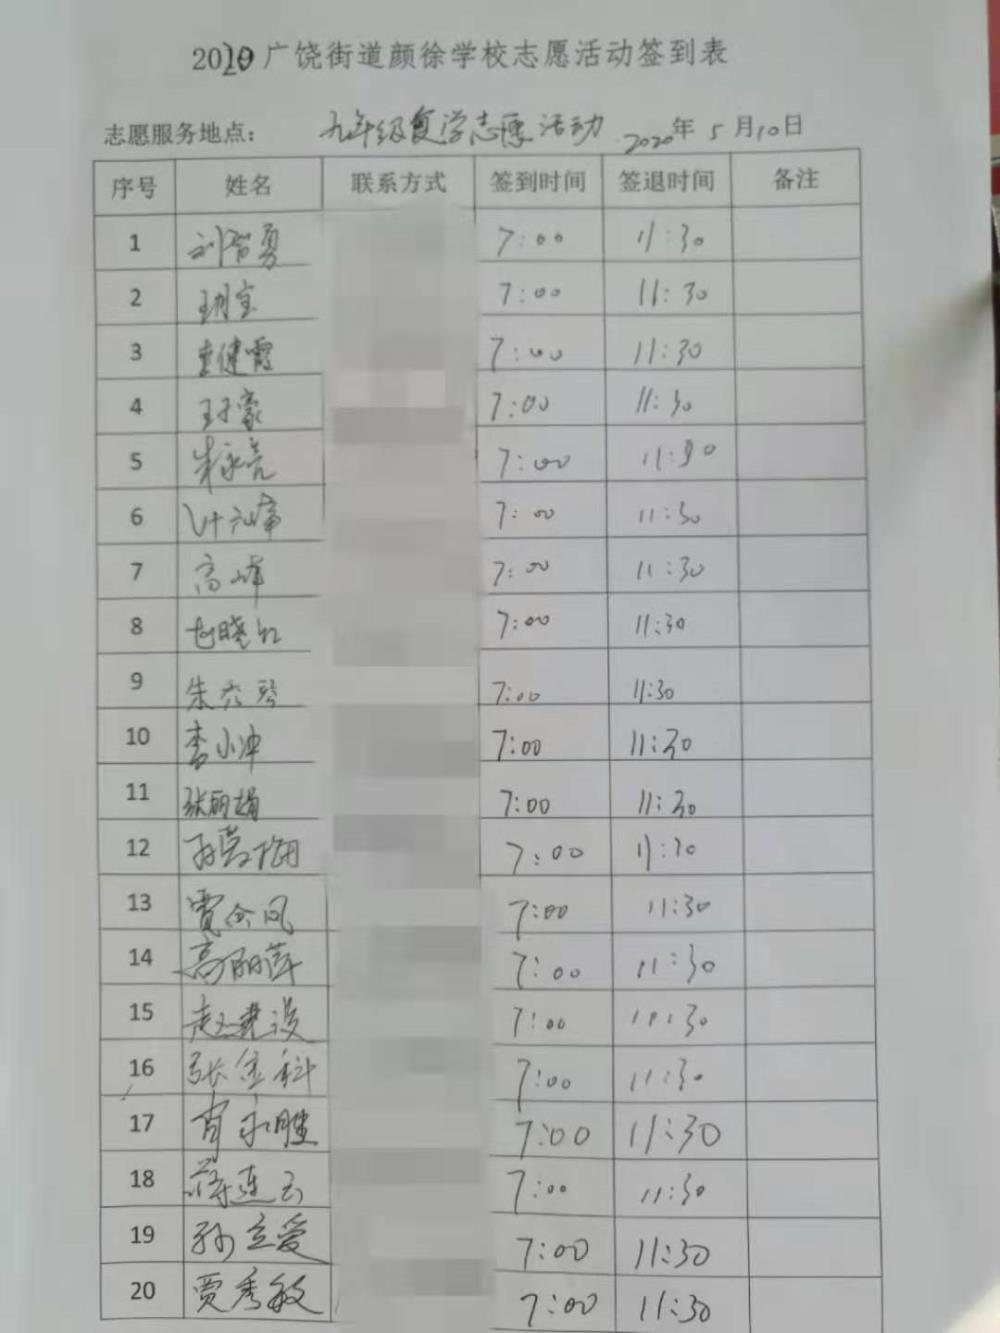 2020 广饶街道颜徐学校志愿活动签到表
志愿服务地点： 九年级复学志愿活动 2020年 5 月10日
序号 姓名 联系方式 签到时间 签退时间 备注
1 刘智勇 7:00 11:30
2 7:00 11:30
3 健霞 7:00 11:30
4 王子豪 7:00 11:30
5 朱永亮 7:00 11:30
6 7:00 11:30
7 高峰 7:00 11:30
8 晓红 7:00 11:30
9 朱 7:00 11:30
10 李小冲 7:00 11:30
11 张丽娟 7:00 11:30
12 7:00 11:30
13 贾 凤 7:00 11:30
14 高丽萍 7:00 11:30
15 赵建设 7:00 11:30
16 张金科 7:00 11:30
17 肖永胜 7:00 11:30
18 蒋连云 7:00 11:30
19 孙立爱 7:00 11:30
20 贾秀敏 7:00 11:30